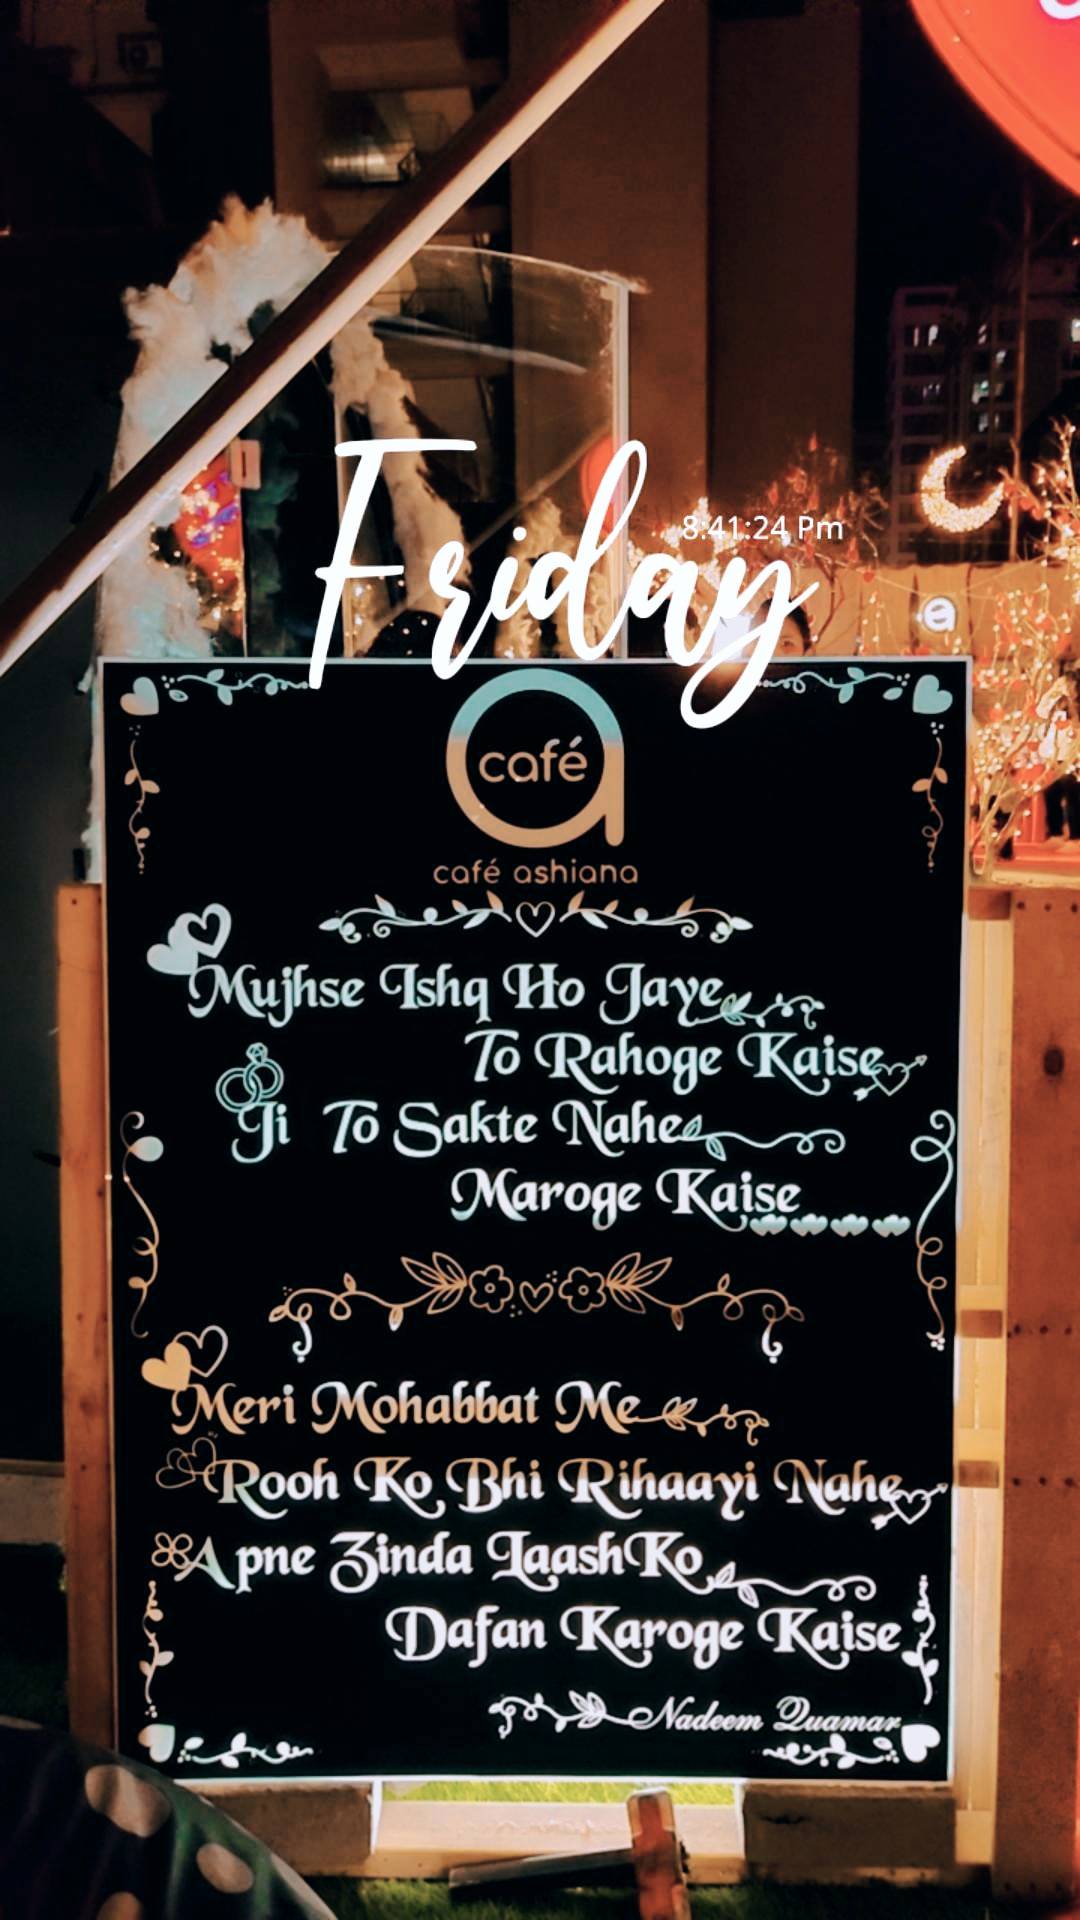 Friday
8:41:24 Pm
café
café ashiana
Mujhse Ishq Ho Jaye
To Rahoge Kaise
Ji To Sakte Nahe
Maroge Kaise
Meri Mohabbat Me
Rooh Ko Bhi Rihaayi Nahe
Apne Zinda Laash Ko
Dafan Karoge Kaise
Nadeem Quamar